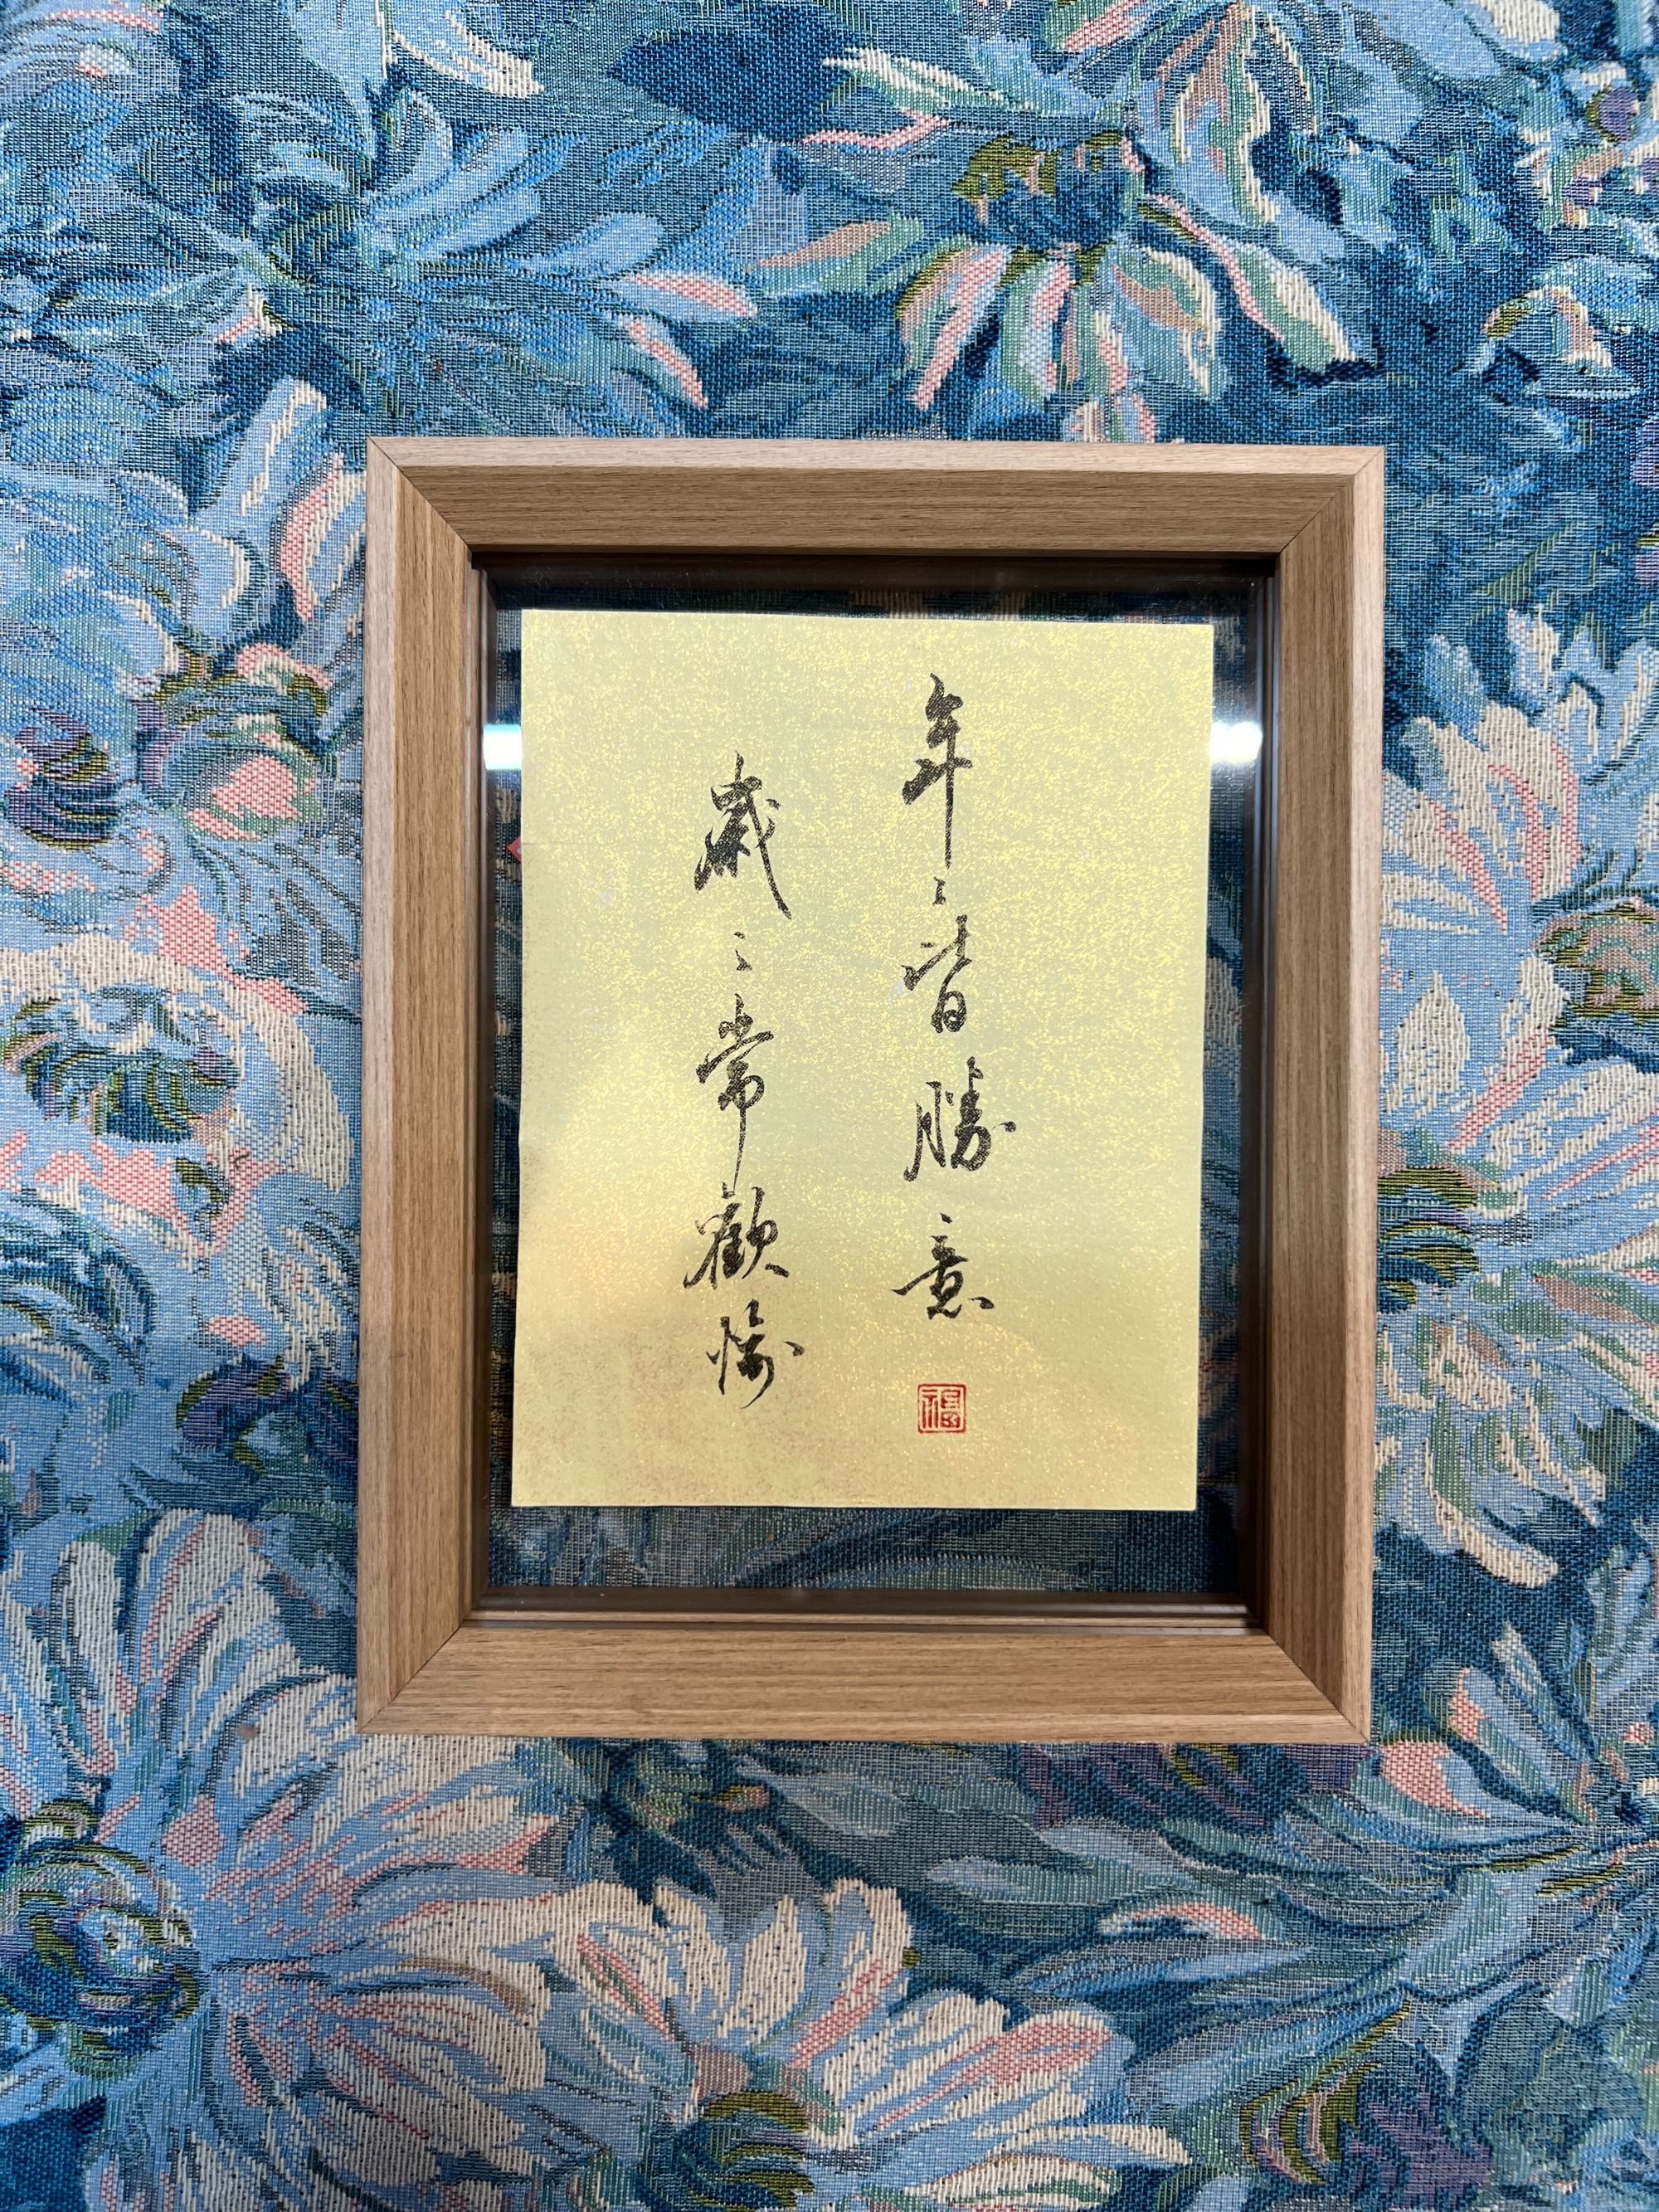 年〻皆勝意
歲〻常歡愉
福